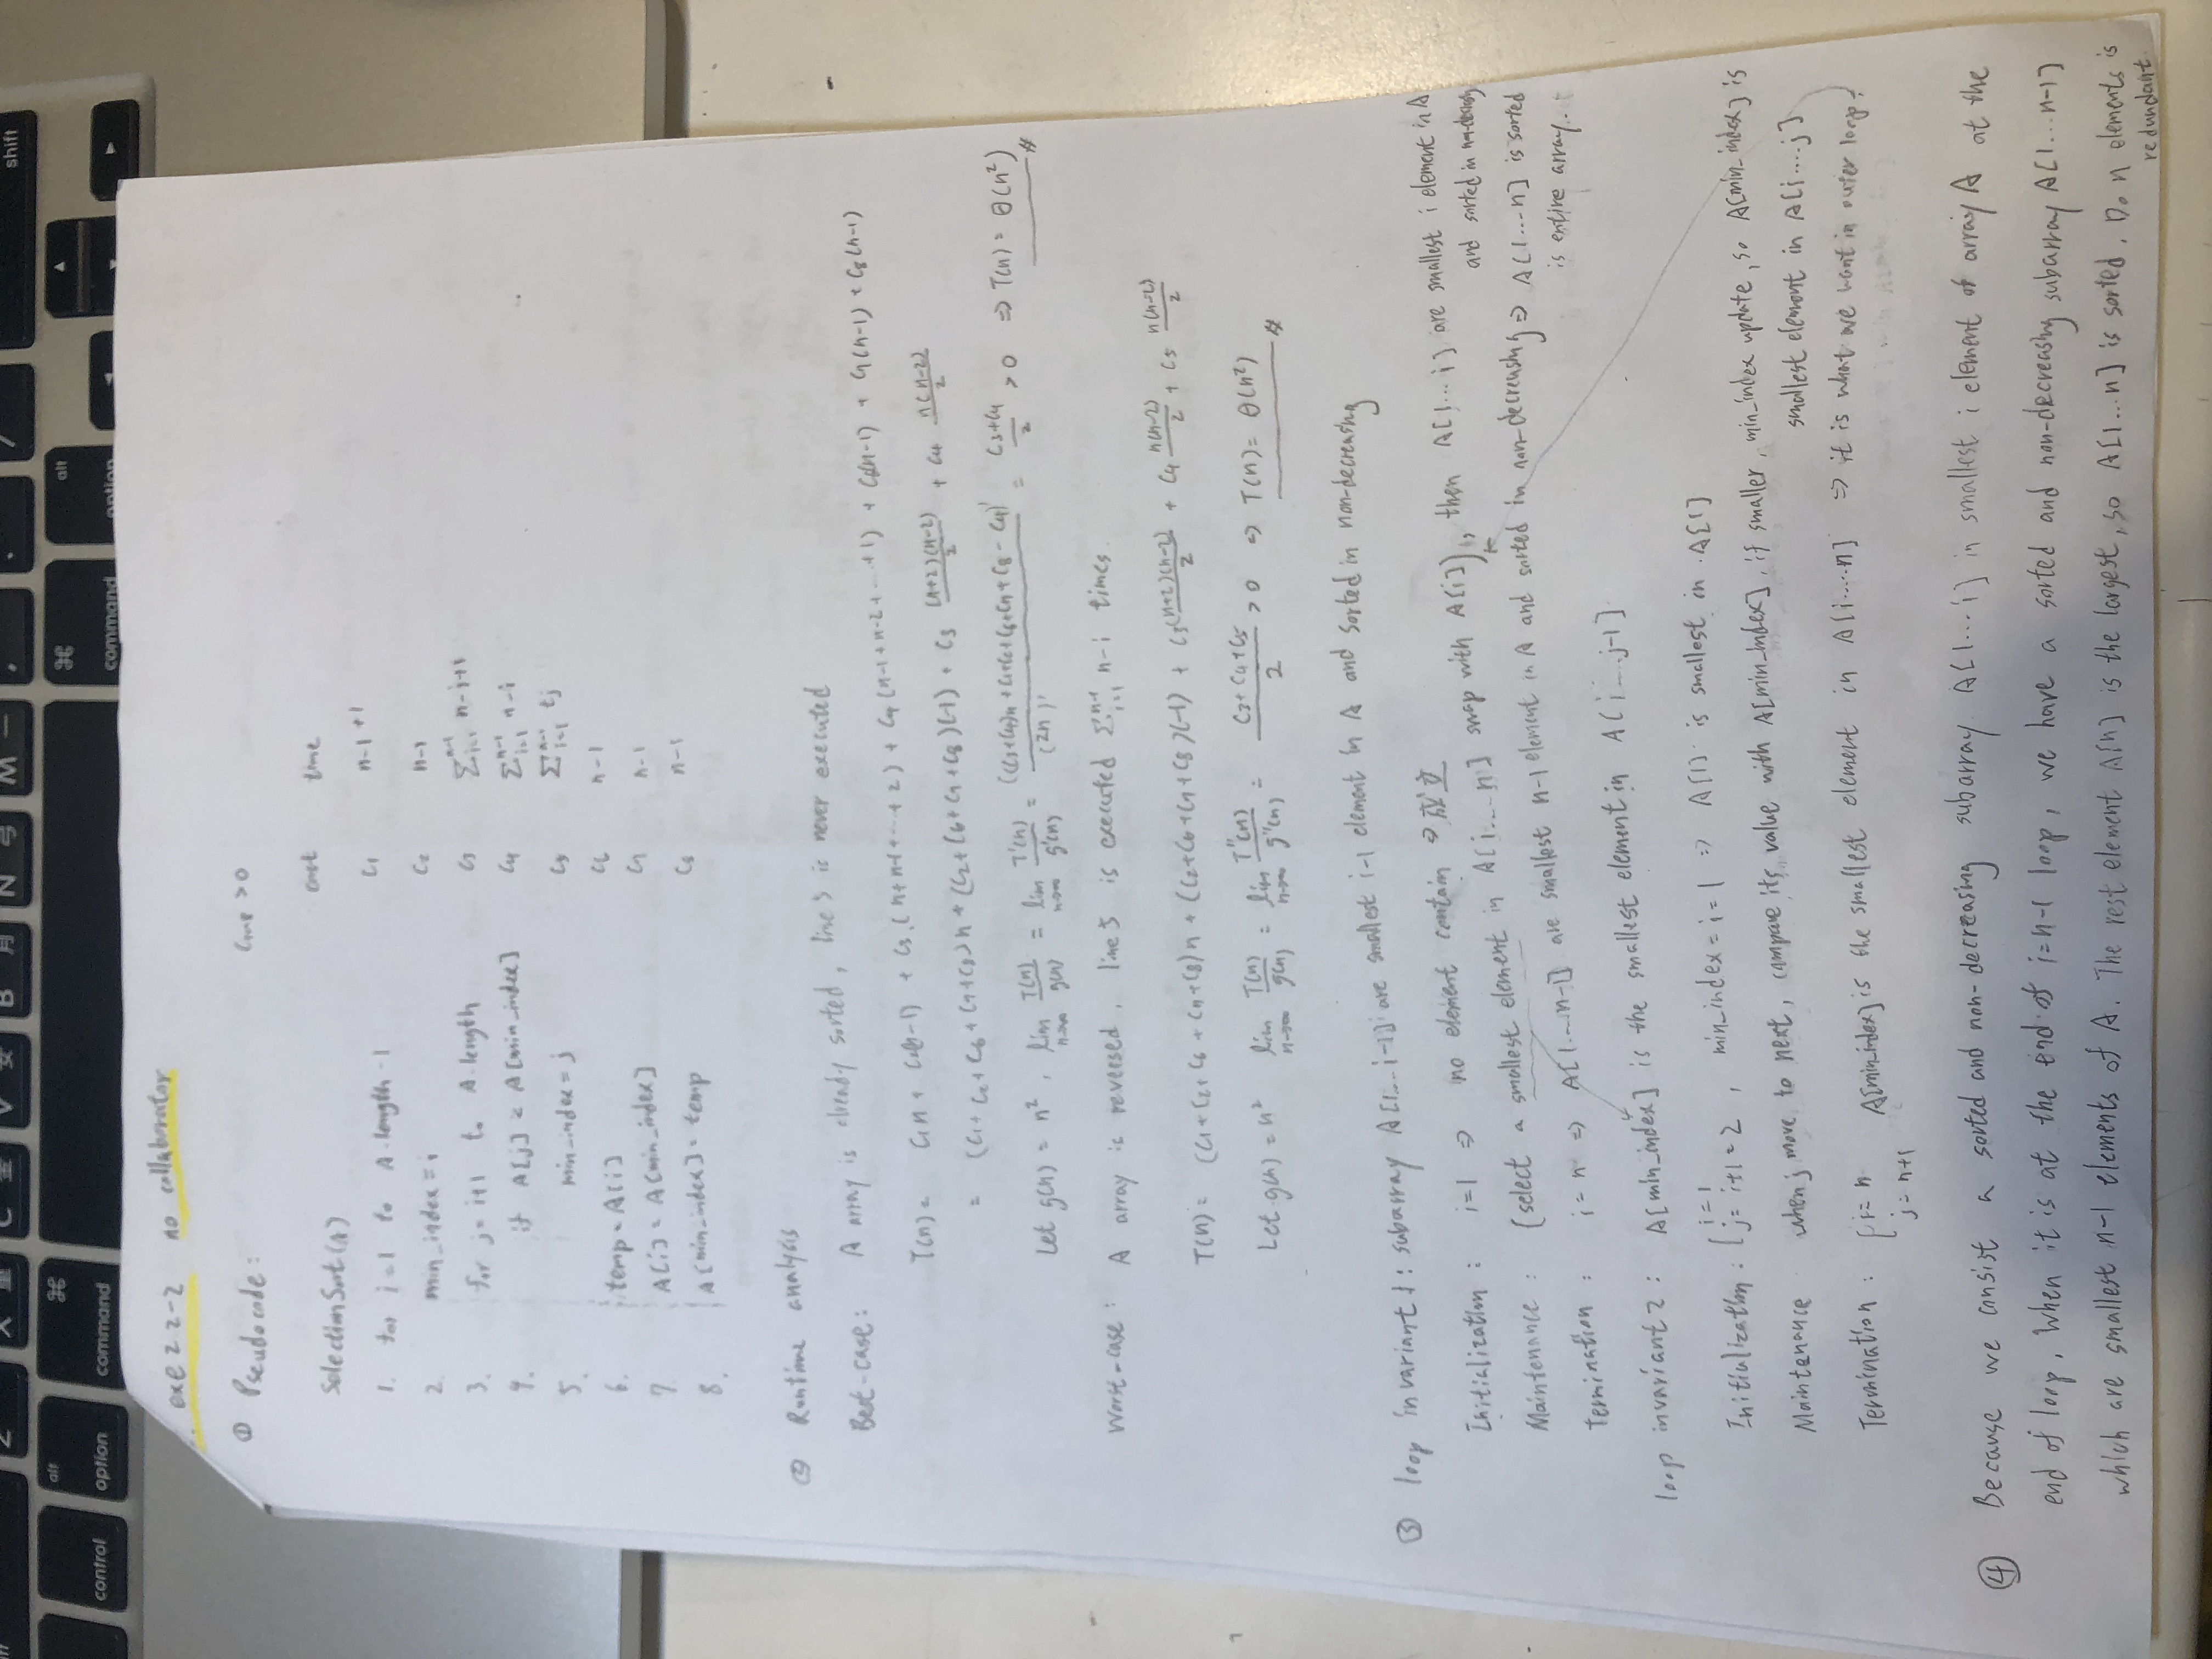 shift
control
alt
option
⌘
command
⌘
command
alt
option
exe 2.2-2 no collaborator
① Pseudocode: C1~8 > 0
SelectionSort(A) cost time
1. for i=1 to A.length-1 C1 n-1+1
2. min_index = i C2 n-1
3. for j=i+1 to A.length C3 Σ_{i=1}^{n-1} n-i+1
4. if A[j] < A[min_index] C4 Σ_{i=1}^{n-1} n-i
5. min_index = j C5 Σ_{i=1}^{n-1} tj
6. temp = A[i] C6 n-1
7 A[i] = A[min_index] C7 n-1
8. A[min_index] = temp C8 n-1
② Runtime analysis
Best-case: A array is already sorted, line 5 is never executed
T(n) = C1n + C2(n-1) + C3.(n+n-1+...+2) + C4(n-1+n-2+...+1) + C6(n-1) + C7(n-1) + C8(n-1)
= (C1+C2+C6+C7+C8)n + (C2+C6+C7+C8)(-1) + C3 (n+2)(n-2)/2 + C4 n(n-2)/2
Let g(n) = n², lim_{n→∞} T(n)/g(n) = lim_{n→∞} T'(n)/g'(n) = ((C3+C4)n + C1+C2+C6+C7+C8-C4)'/(2n)' = (C3+C4)/2 > 0 ⇒ T(n) = Θ(n²) #
Worst-case: A array is reversed. line 5 is executed Σ_{i=1}^{n-1} n-i times.
T(n) = (C1+C2+C6+C7+C8)n + (C2+C6+C7+C8)(-1) + C3 (n+2)(n-2)/2 + C4 n(n-2)/2 + C5 n(n-2)/2
Let g(n) = n² lim_{n→∞} T(n)/g(n) = lim_{n→∞} T''(n)/g''(n) = (C3+C4+C5)/2 > 0 ⇒ T(n) = Θ(n²) #
③ loop invariant 1: subarray A[1...i-1] are smallest i-1 element in A and sorted in non-decreasing
Initialization: i=1 ⇒ no element contain ⇒ 成立
Maintenance: (select a smallest element in A[i...n] swap with A[i]), then A[1...i] are smallest i element in A
and sorted in non-decreasing
Termination: i=n ⇒ A[1...n-1] are smallest n-1 element in A and sorted in non-decreasing ⇒ A[1...n] is sorted
is entire array.
loop invariant 2: A[min_index] is the smallest element in A[i...j-1]
Initialization: { i=1
j=i+1=2, min_index = i = 1 ⇒ A[1] is smallest in A[1]
Maintenance when j move to next, compare its value with A[min_index], if smaller, min_index update, so A[min_index] is
smallest element in A[i....j]
Termination: { i=n A[min_index] is the smallest element in A[i.....n] ⇒ it is what we want in outer loop.
j=n+1
④ Because we consist a sorted and non-decreasing subarray A[1...i] in smallest i element of array A at the
end of loop, When it is at the end of i=n-1 loop, we have a sorted and non-decreasing subarray A[1...n-1]
which are smallest n-1 elements of A. The rest element A[n] is the largest, so A[1...n] is sorted. Do n elements is
redundant.